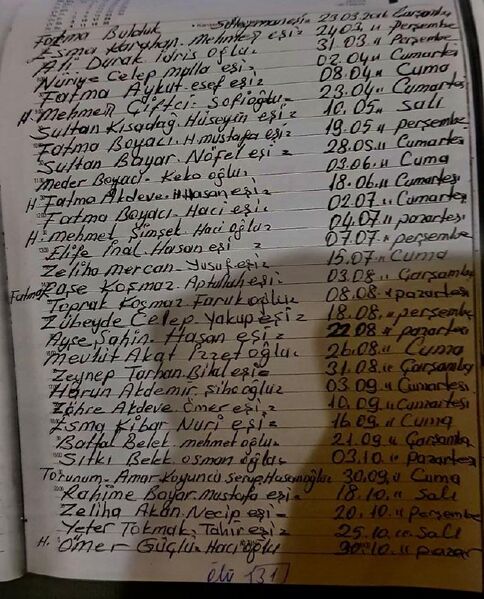 Fatma Bulduk Süleyman eşi = 23.03.2016 Çarşamba
Esma Karahan. Mehmet eşi = 24.03. " Perşembe
Ali Durak İdris oğlu. 31.03. " Perşembe
Nuriye Celep Molla eşi = 02.04 " Cumartesi
Fatma Aykut esef eşi = 08.04 " Cuma
H. Mehmet Çiftci. Sofioğlu. 23.04 " Cumartesi
Sultan Kısadağ. Hüseyin eşi = 10.05 " Salı
Fatma Boyacı. H.mustafa eşi = 19.05 " perşembe
Sultan Bayar. Nöfel eşi = 28.05 " Cumartesi
Meder Boyacı. Keko oğlu 03.06. " Cuma
H. Fatma Akdeve. H.Hasan eşi = 18.06. " Cumartesi
Fatma Boyacı. Haci eşi = 02.07. " Cumartesi
H. mehmet Şimşek. Haci oğlu = 04.07. " pazartesi
Elife İnal. Hasan eşi = 07.07. " perşembe
Zeliha Mercan. Yusuf eşi = 15.07 " Cuma
Fatma Paşe Koşmaz. Aptullah eşi. 03.08. " Çarşamba
Toprak Koşmaz. Faruk oğlu = 08.08. " pazartesi
Zübeyde Celep. Yakup eşi = 18.08. " perşembe
Ayşe Şahin. Hasan eşi = 22.08 " pazartesi
Mevlüt Akat İzzet oğlu. 26.08. " Cuma
Zeynep Tarhan. Bilal eşi = 31.08. " Çarşamba
Harun Akdemir. oğlu = 03.09. " Cumartesi
Zöhre Akdeve. Ömer eşi = 10.09. " Cumartesi
Esma Kibar Nuri eşi = 16.09. " Cuma
Battal Belet. mehmet oğlu. 21.09. " Çarşamba
Sıtkı Belet. osman oğlu. 03.10. " pazartesi
Torunum. Amar. Koyuncu 30.09. " Cuma
Rahime Bayar. Mustafa eşi = 18.10. " Salı
Zeliha Akan. Necip eşi = 20.10. " perşembe
Yeter Tokmak. Tahir eşi = 25.10. " Salı
H. Ömer Güçlü. Haci oğlu 30.10. " pazar
ölü 31